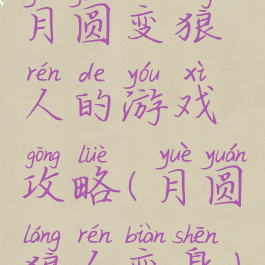 月圆变狼
rén de yóu xì
人的游戏
gōng lüè yuè yuán
攻略(月圆
láng rén biàn shēn
狼人变身)